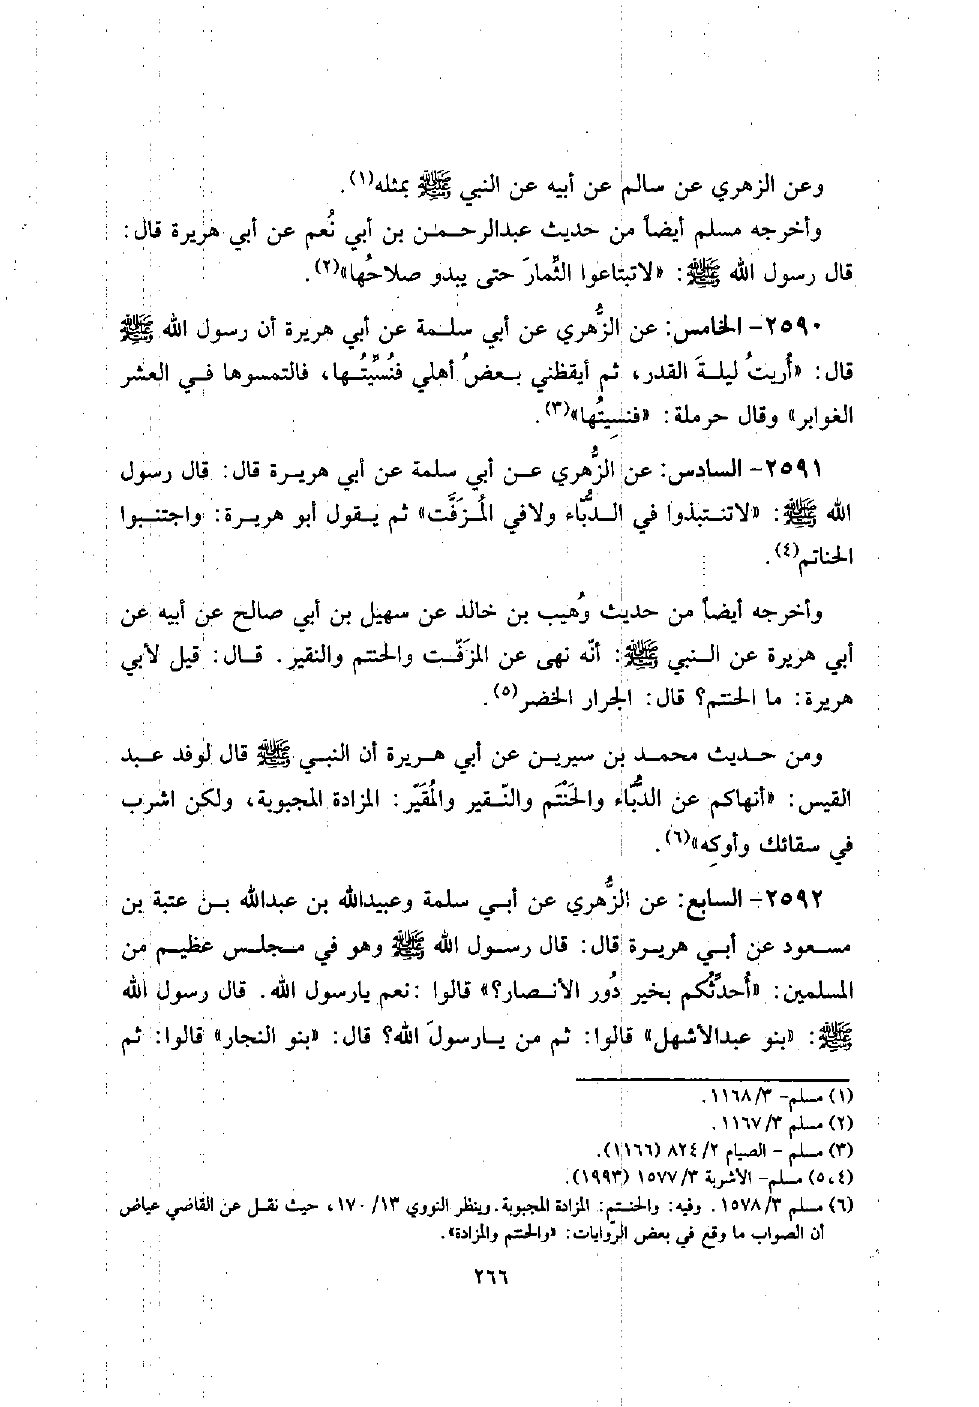 وعن الزهري عن سالم عن أبيه عن النبي ﷺ بمثله(١).
وأخرجه مسلم أيضاً من حديث عبدالرحمن بن أبي نُعم عن أبي هريرة قال:
قال رسول الله ﷺ: «لاتبتاعوا الثِّمارَ حتى يبدو صلاحُها»(٢).
٢٥٩٠- الخامس: عن الزُّهري عن أبي سلمة عن أبي هريرة أن رسول الله ﷺ
قال: «أُريتُ ليلةَ القدر، ثم أيقظني بعضُ أهلي فنُسِّيتُها، فالتمسوها في العشر
الغوابر» وقال حرملة: «فنسِيتُها»(٣).
٢٥٩١- السادس: عن الزُّهري عن أبي سلمة عن أبي هريرة قال: قال رسول
الله ﷺ: «لاتنتبذوا في الدُّبّاء ولافي المُزَفَّت» ثم يقول أبو هريرة: واجتنبوا
الحناتم(٤).
وأخرجه أيضاً من حديث وُهيب بن خالد عن سهيل بن أبي صالح عن أبيه عن
أبي هريرة عن النبي ﷺ: أنّه نهى عن المزفّت والحنتم والنقير. قال: قيل لأبي
هريرة: ما الحنتم؟ قال: الجرار الخضر(٥).
ومن حديث محمد بن سيرين عن أبي هريرة أن النبي ﷺ قال لوفد عبد
القيس: «أنهاكم عن الدُّبّاء والحَنْتَم والنّقير والمُقَيّر: المزادة المجبوبة، ولكن اشرب
في سقائك وأوكِه»(٦).
٢٥٩٢- السابع: عن الزُّهري عن أبي سلمة وعبيدالله بن عبدالله بن عتبة بن
مسعود عن أبي هريرة قال: قال رسول الله ﷺ وهو في مجلس عظيم من
المسلمين: «أُحدِّثُكم بخير دُور الأنصار؟» قالوا :نعم يارسول الله. قال رسول الله
ﷺ: «بنو عبدالأشهل» قالوا: ثم من يارسولَ الله؟ قال: «بنو النجار» قالوا: ثم
(١) مسلم- ٣/ ١١٦٨.
(٢) مسلم ٣/ ١١٦٧.
(٣) مسلم - الصيام ٢/ ٨٢٤ (١١٦٦).
(٤،٥) مسلم- الأشربة ٣/ ١٥٧٧ (١٩٩٣).
(٦) مسلم ٣/ ١٥٧٨. وفيه: والحنتم: المزادة المجبوبة. وينظر النووي ١٣/ ١٧٠، حيث نقل عن القاضي عياض
أن الصواب ما وقع في بعض الرّوايات: «والحنتم والمزادة».
٢٦٦